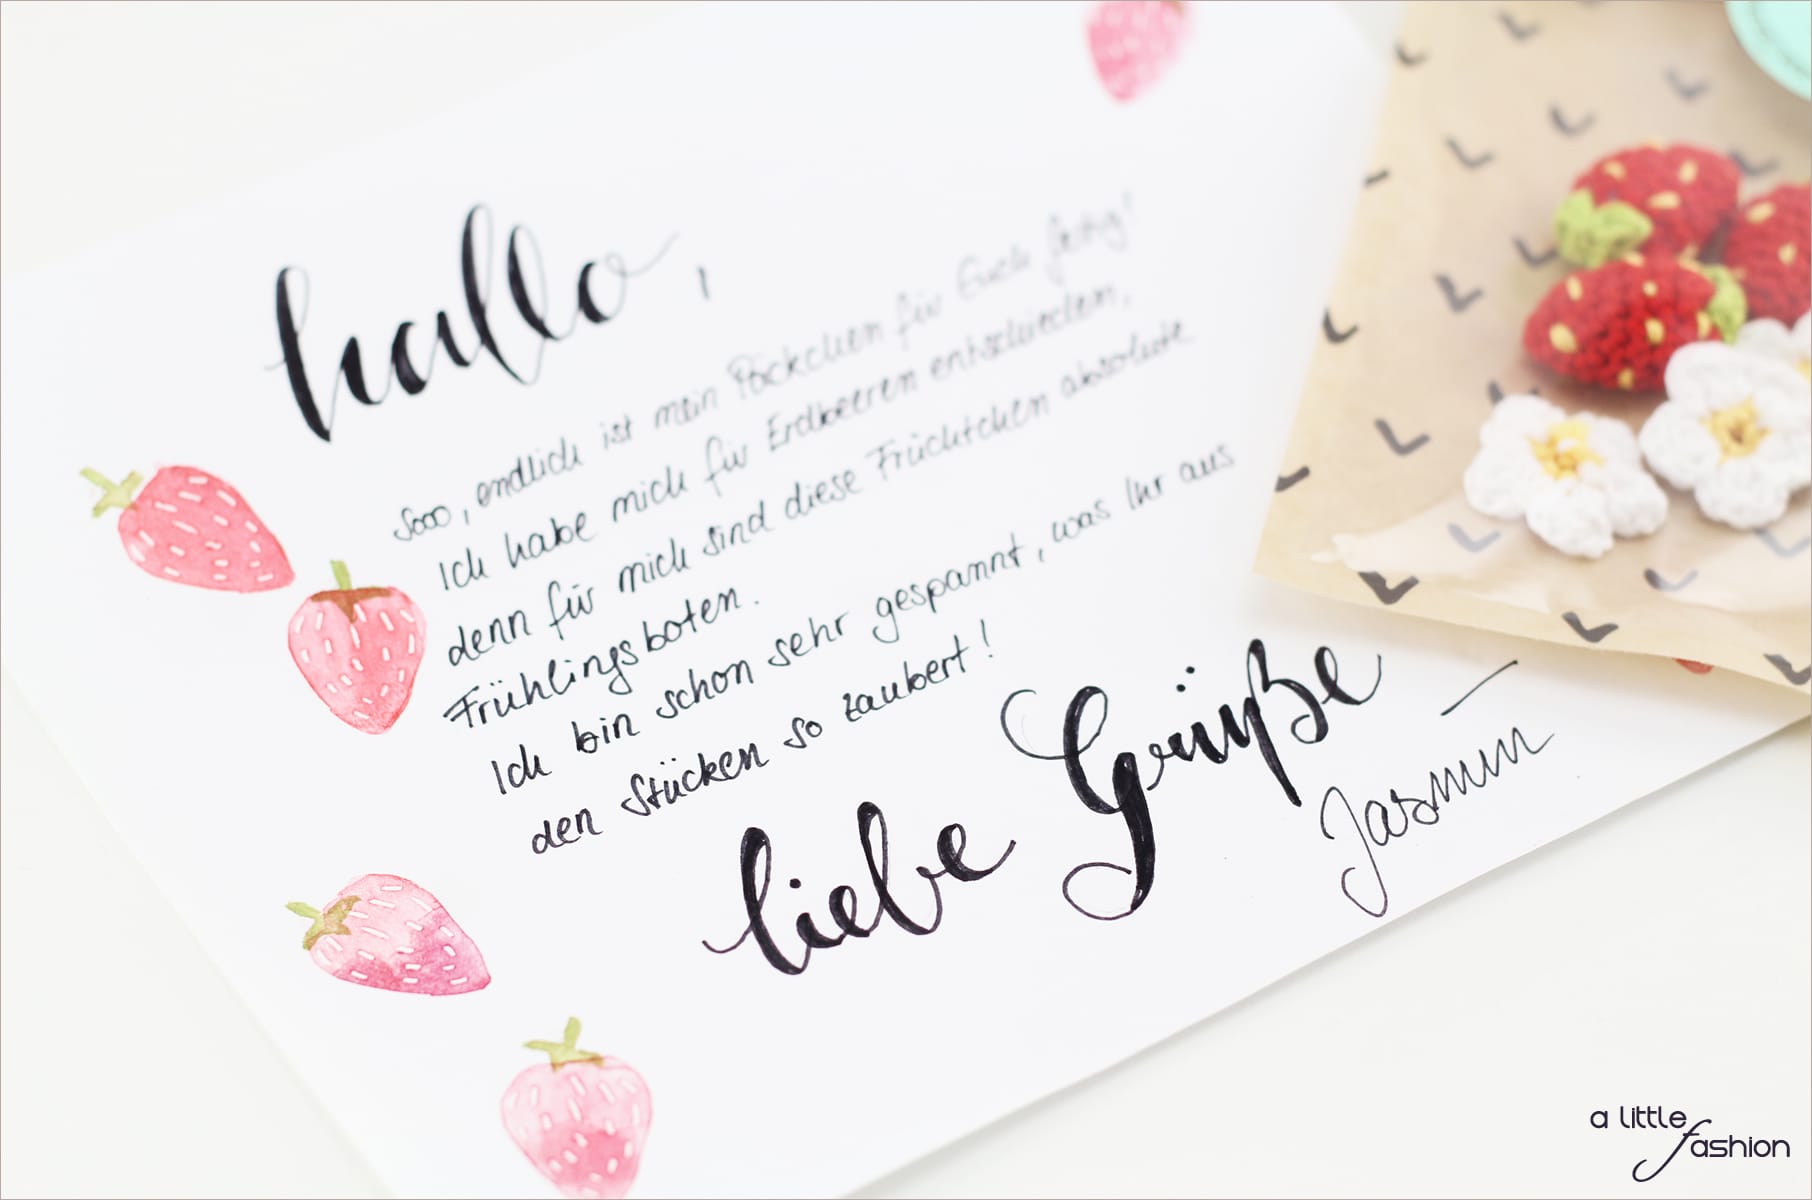 hallo,
Sooo, endlich ist mein Päckchen für Euch fertig!
Ich habe mich für Erdbeeren entschieden,
denn für mich sind diese Früchtchen absolute
Frühlingsboten.
Ich bin schon sehr gespannt, was Ihr aus
den Stücken so zaubert!
liebe Grüße
Jasmin
a little
fashion